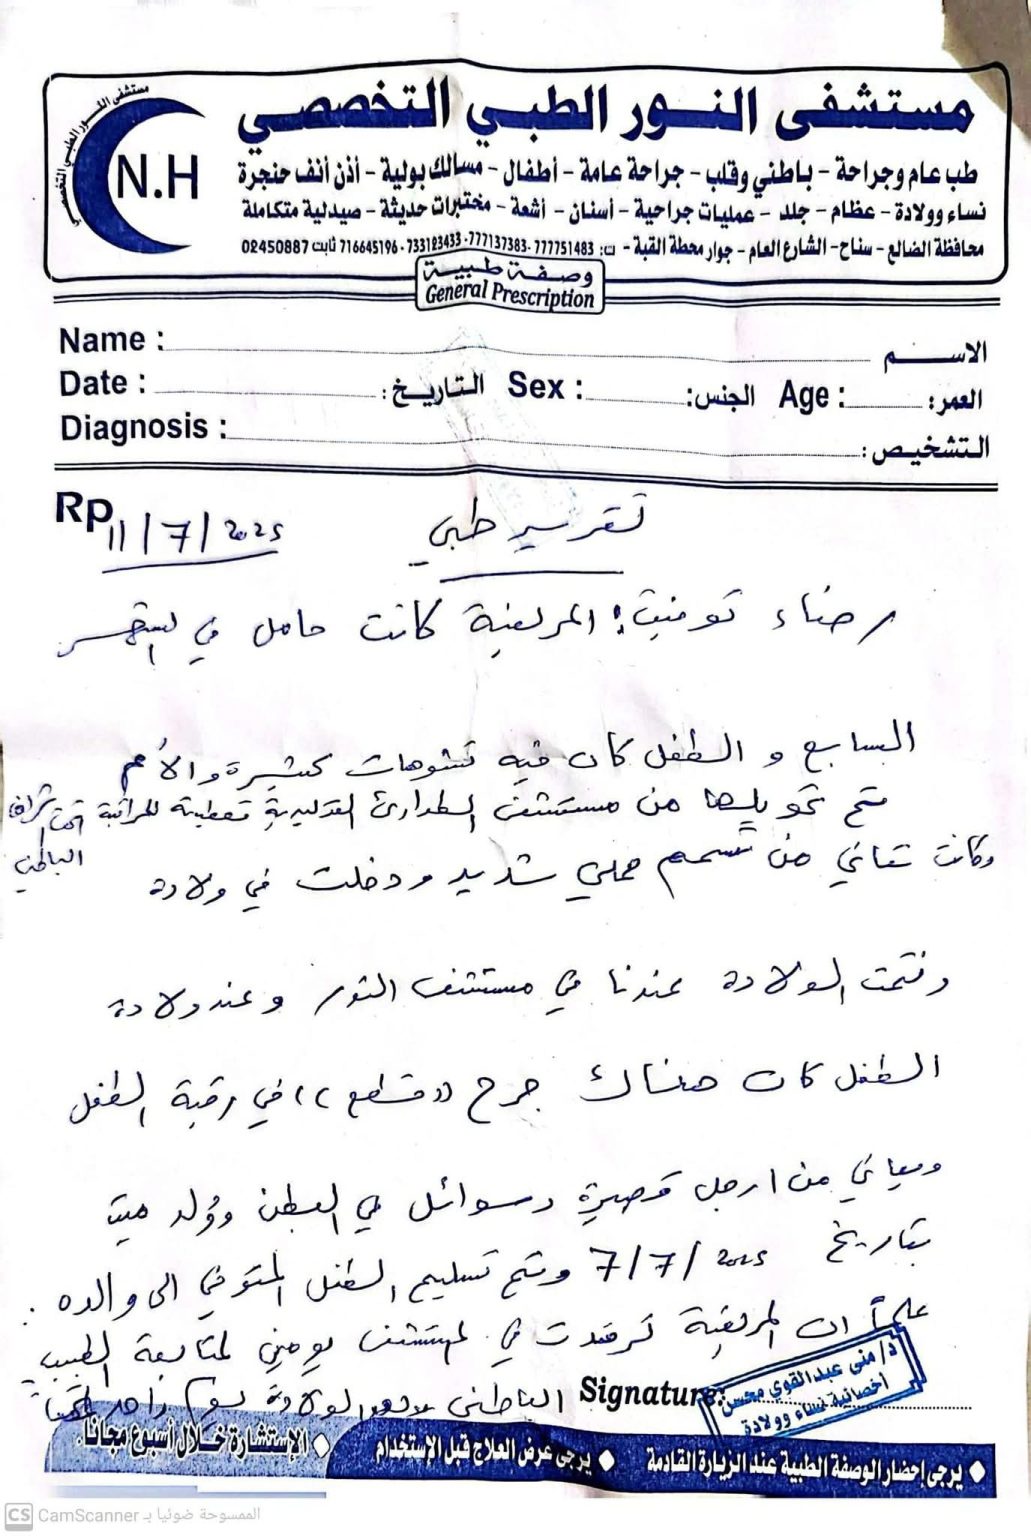 مستشفى النور الطبي التخصصي
طب عام وجراحة - باطني وقلب - جراحة عامة - أطفال - مسالك بولية - أذن أنف حنجرة
نساء وولادة - عظام - جلد - عمليات جراحية - أسنان - أشعة - مختبرات حديثة - صيدلية متكاملة
محافظة الضالع - سناح - الشارع العام - جوار محطة القبة - ت: 777751483 - 777137383 - 733123433 - 716645196 ثابت 02450887
N.H
مستشفى النور الطبي التخصصي
وصفة طبية
General Prescription
Name : الاسم
Date : التاريخ: Sex : الجنس: Age : العمر:
Diagnosis : التشخيص:
Rp
11/7/2025 تقرير طبي
المريضة كانت حامل في الشهر
السابع و الطفل كان فيه تشوهات كثيرة والأم
تم تحويلها من مستشفى الطوارئ التوليدية للمراقبة تحت اشراف
الباطني
وكانت تعاني من تسمم حملي شديد ودخلت في ولادة
وتمت الولادة عندنا في مستشفى النور وعند ولادة
الطفل كان هناك جرح ((قطع)) في رقبة الطفل
ويعاني من ارجل قصيرة وسوائل في البطن وولد ميت
بتاريخ 7/7/2025 وتم تسليم الطفل المتوفي الى والده .
علماً ان المريضة ترقدت في المستشفى يومين لمتابعة الطبيب
الباطني الولادة يوم واحد
Signature:
د/ منى عبدالقوي محسن
أخصائية نساء وولادة
يرجى إحضار الوصفة الطبية عند الزيارة القادمة ◆ يرجى عرض العلاج قبل الإستخدام ◆ الإستشارة خلال أسبوع مجاناً.
CS CamScanner الممسوحة ضوئيا بـ